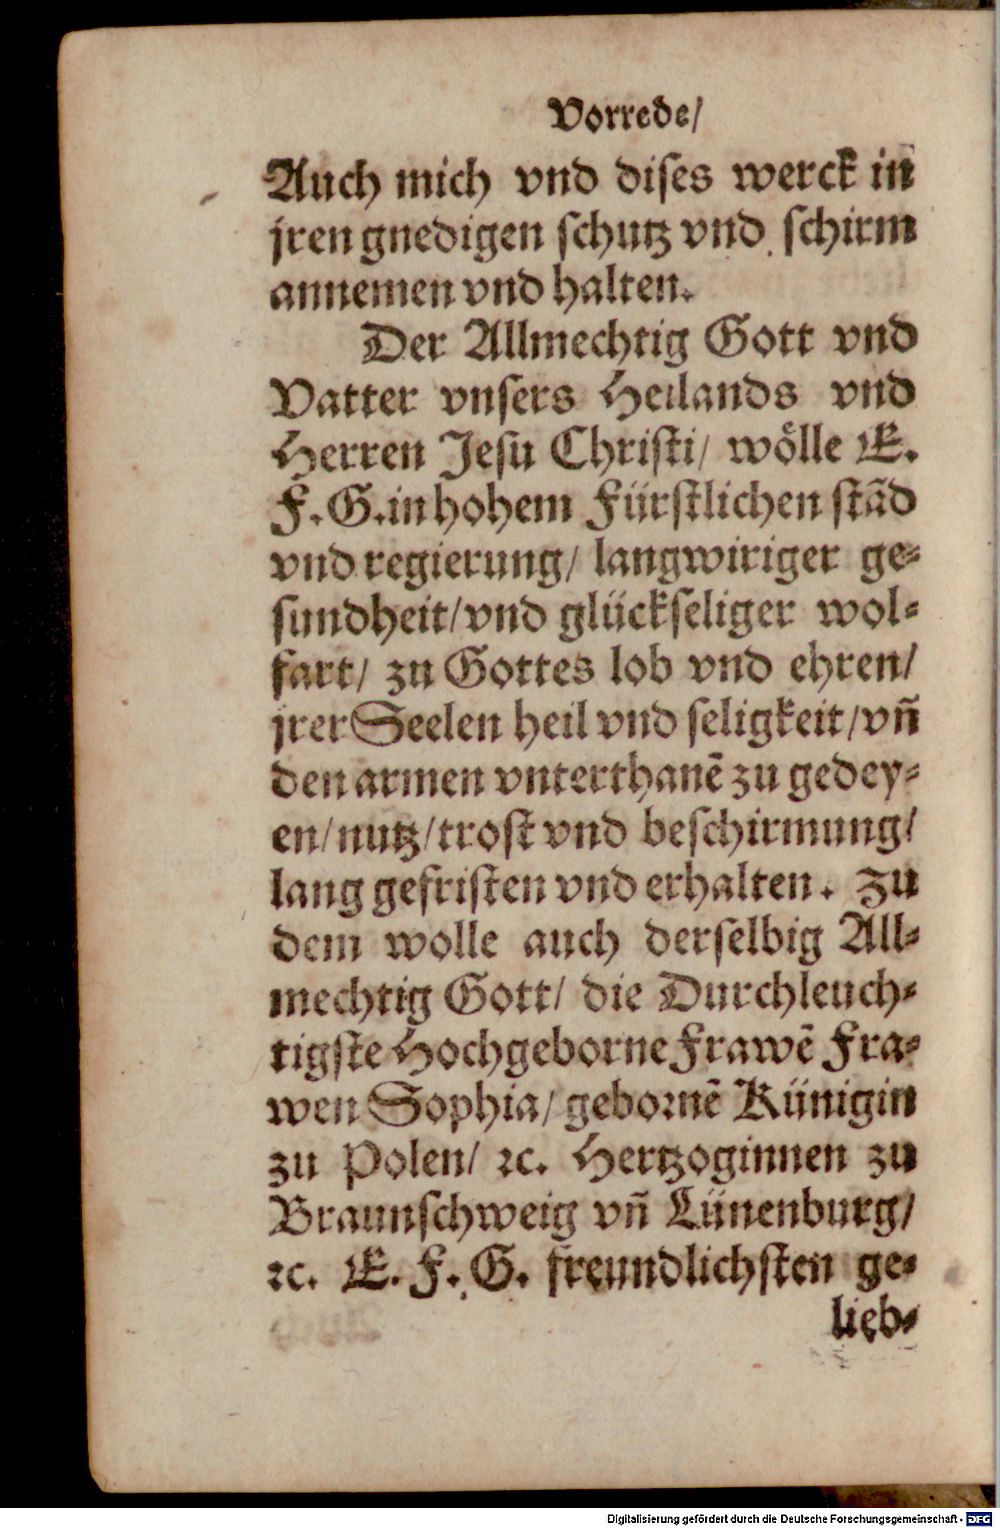 Vorrede/
Auch mich vnd dises werck in
jren gnedigen schutz vnd schirm
annemen vnd halten.
Der Allmechtig Gott vnd
Vatter vnsers Heilands vnd
Herren Jesu Christi/ wölle E.
F. G. in hohem Fürstlichen stãd
vnd regierung/ langwiriger ge-
sundheit/ vnd glückseliger wol-
fart/ zu Gottes lob vnd ehren/
jrer Seelen heil vnd seligkeit/ vñ
den armen vnterthanẽ zu gedey-
en/ nutz/ trost vnd beschirmung/
lang gefristen vnd erhalten. Zu
dem wolle auch derselbig All-
mechtig Gott/ die Durchleuch-
tigste Hochgeborne Frawẽ Fra-
wen Sophia/ gebornẽ Künigin
zu Polen/ ꝛc. Hertzoginnen zu
Braunschweig vñ Lünenburg/
ꝛc. E. F. G. freundlichsten ge-
lieb-
Digitalisierung gefördert durch die Deutsche Forschungsgemeinschaft - DFG